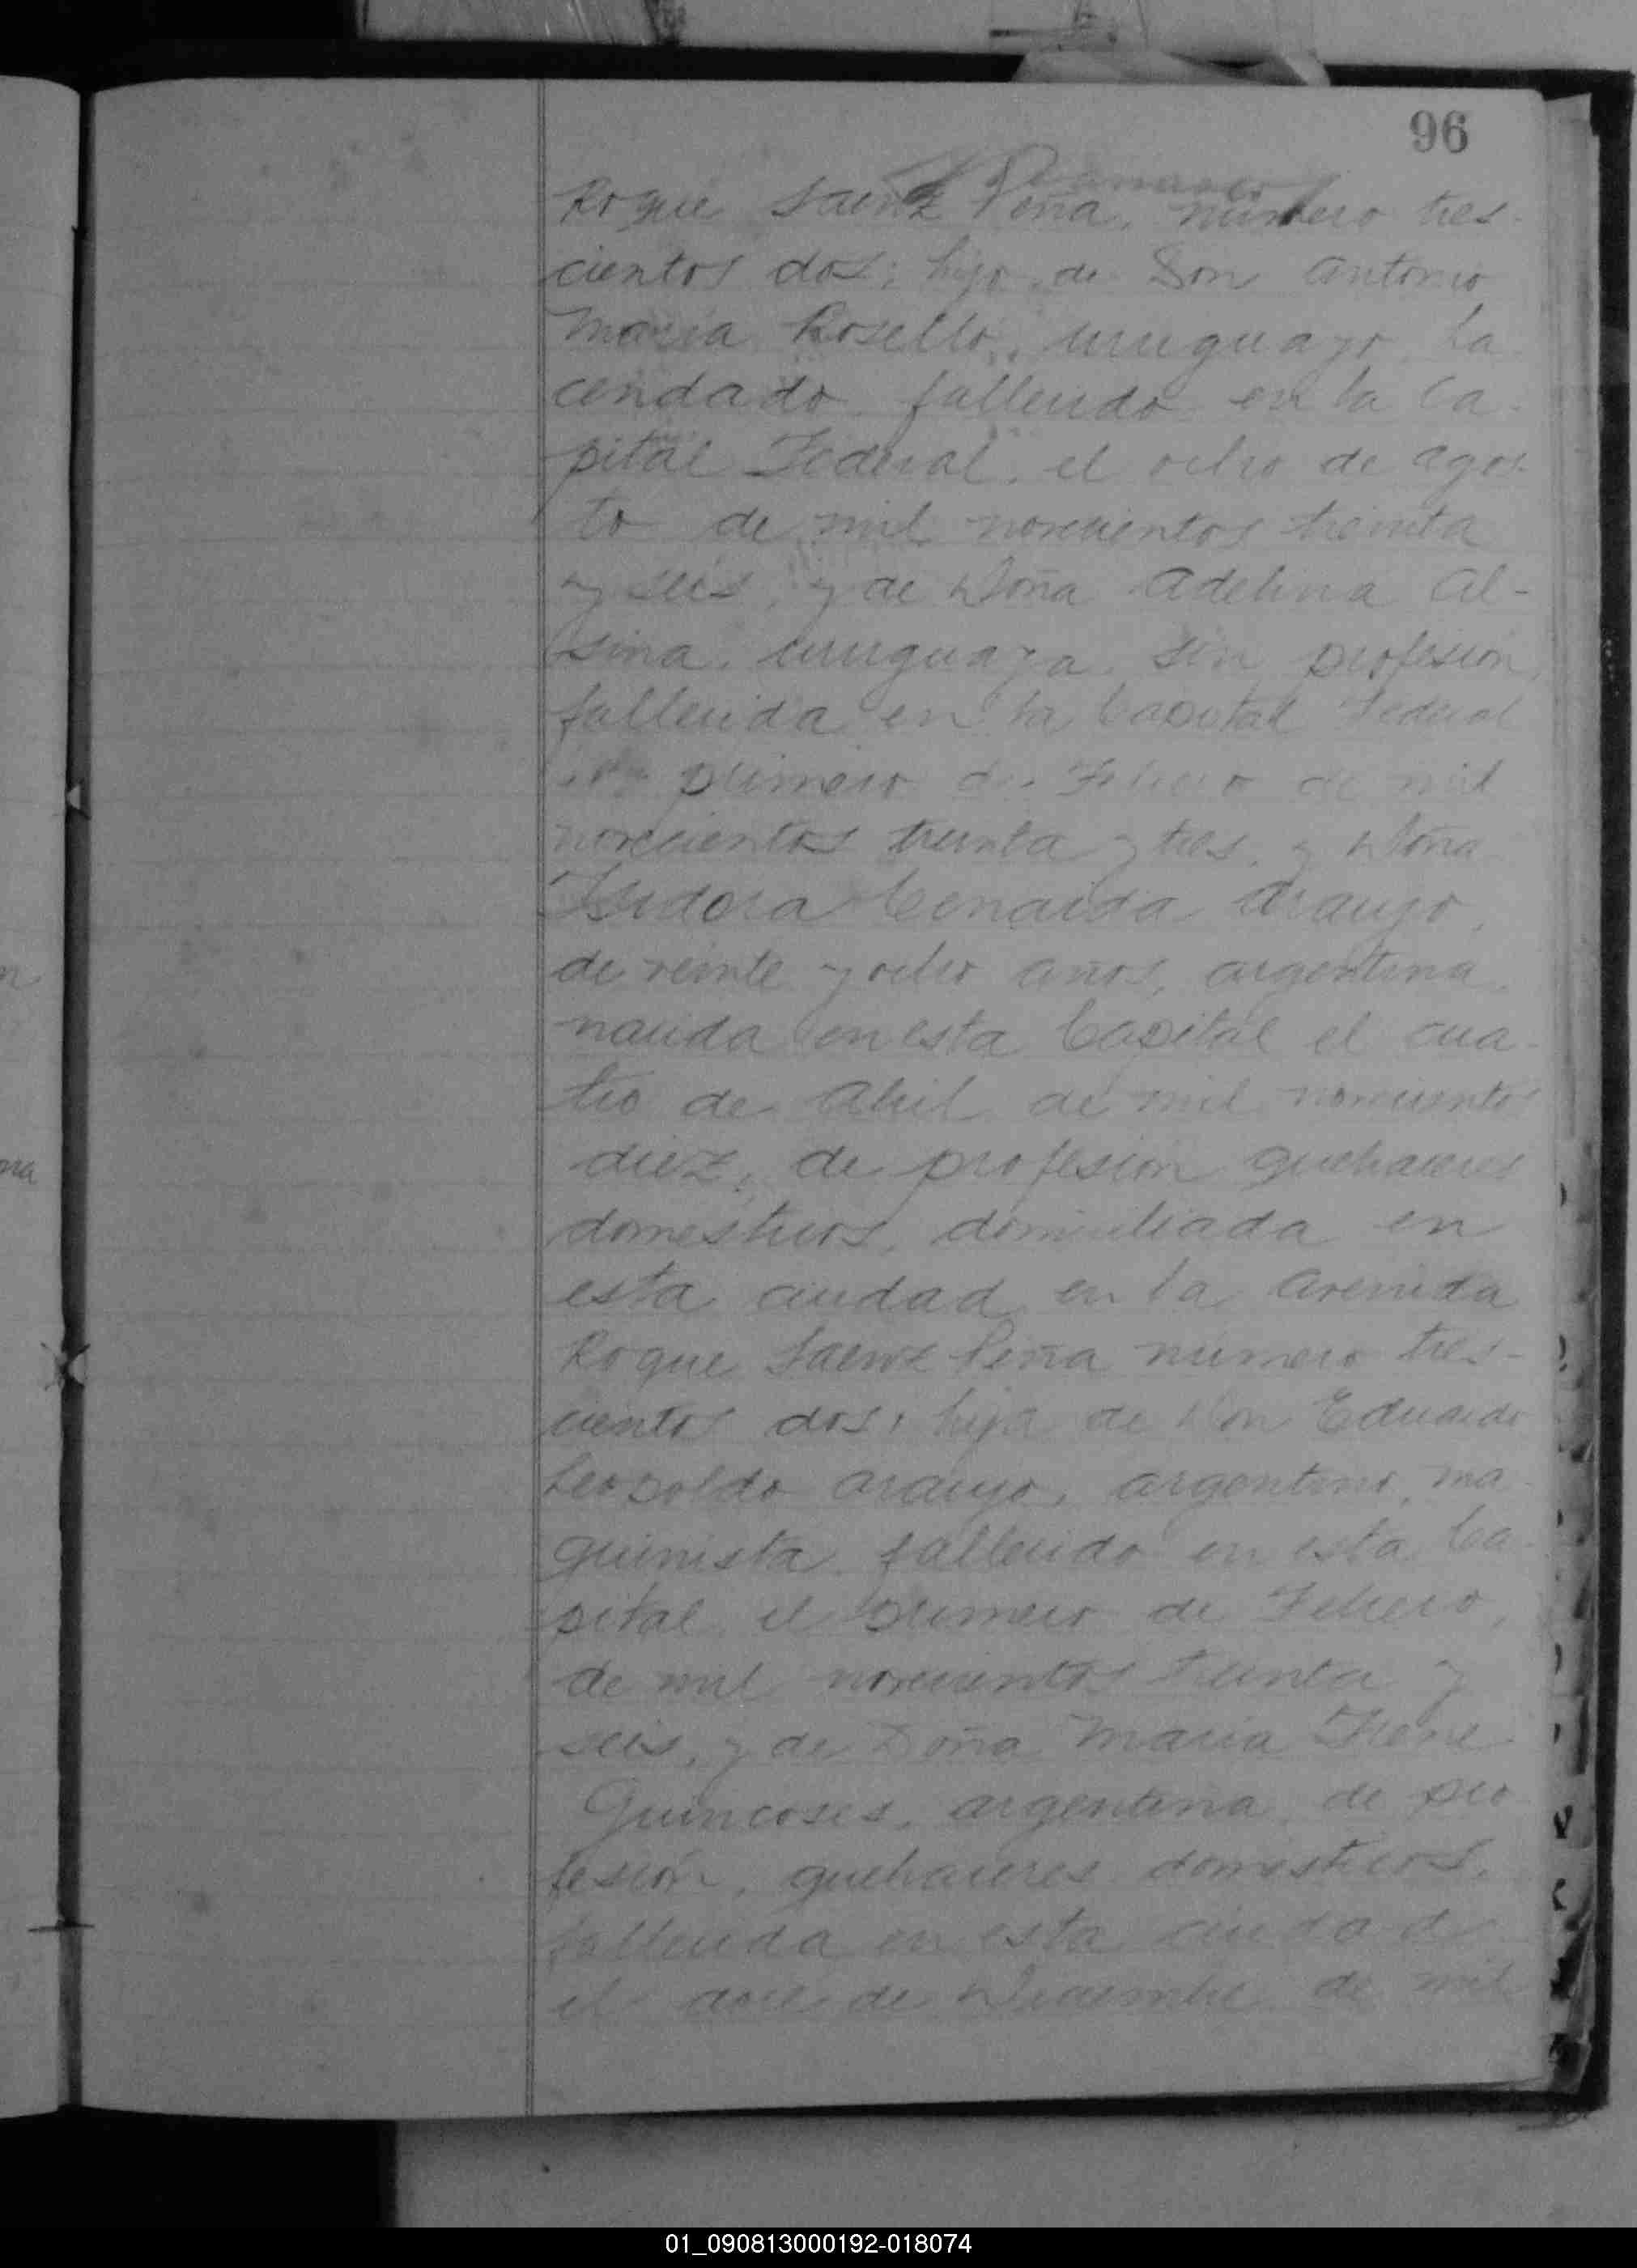 96
Roque Saenz Peña, número tres-
cientos dos; hijo de Don Antonio
Maria Rosello, uruguayo, ha
cendado fallecido en la Ca-
pital Federal, el ocho de agos-
to de mil novecientos treinta
y seis, y de Doña Adelina Al-
sina, uruguaya, sin profesión,
fallecida en la Capital Federal
el primero de Febrero de mil
novecientos treinta y tres, y Doña
Isidora Cenaida Araujo,
de veinte y ocho años, argentina,
nacida en esta Capital el cua-
tro de Abril de mil novecientos
diez, de profesión quehaceres
domesticos, domiciliada en
esta ciudad en la Avenida
Roque Saenz Peña número tres-
cientos dos, hija de Don Eduardo
Leopoldo Araujo, argentino, ma-
quinista fallecido en esta Ca-
pital el primero de Febrero,
de mil novecientos treinta y
seis, y de Doña Maria Irene
Guincoses, argentina, de pro
fesión, quehaceres domesticos,
fallecida en esta ciudad
el doce de Diciembre de mil
01_090813000192-018074